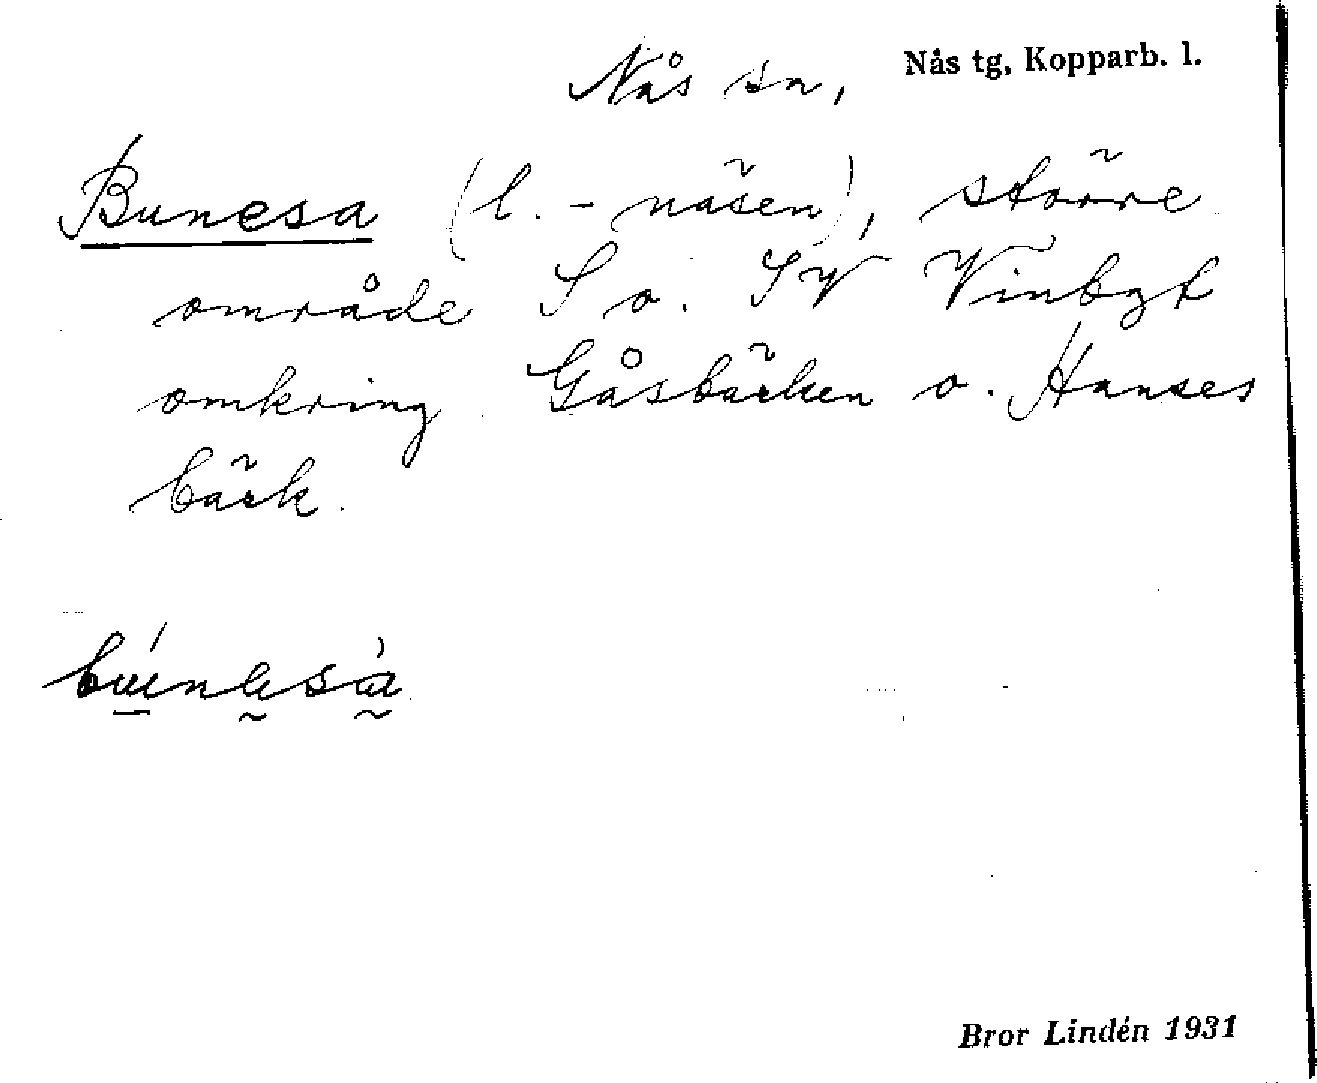 Nås sn, Nås tg, Kopparb. l.
Bunesa (l. -näsen), större
område S o. SV Vinbgt
omkring Gåsbäcken o. Hanses
bäck.
Bror Lindén 1931